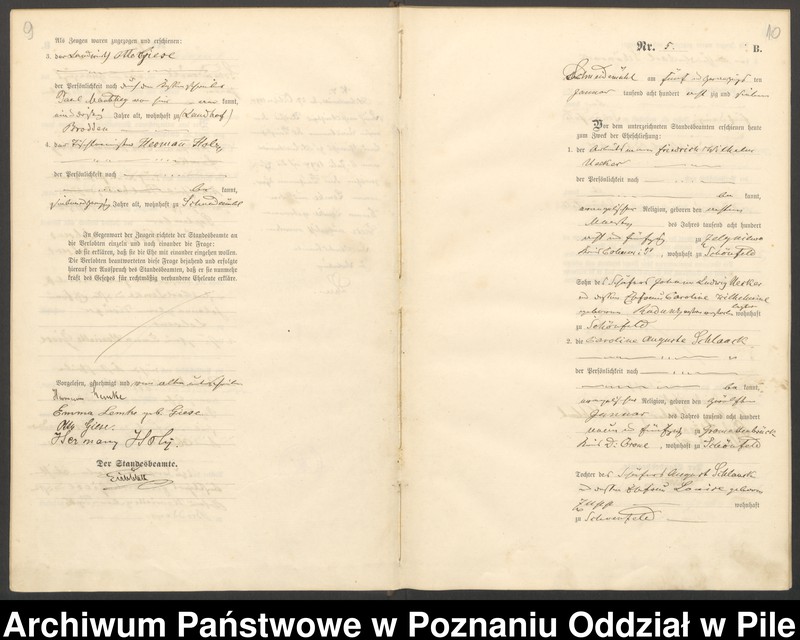 9
Als Zeugen waren zugezogen und erschienen:
3. der Landwirth Otto Giese
der Persönlichkeit nach durch den
kannt,
Jahre alt, wohnhaft zu (Landhof)
Brodden
4. der Tischlermeister Hermann
der Persönlichkeit nach
be kannt,
Jahre alt, wohnhaft zu Schneidemühl
In Gegenwart der Zeugen richtete der Standesbeamte an
die Verlobten einzeln und nach einander die Frage:
ob sie erklären, daß sie die Ehe mit einander eingehen wollen.
Die Verlobten beantworteten diese Frage bejahend und erfolgte
hierauf der Ausspruch des Standesbeamten, daß er sie nunmehr
kraft des Gesetzes für rechtmäßig verbundene Eheleute erkläre.
Vorgelesen, genehmigt und von allen unterschrieben
Hermann Lemke
Emma Lemke geb. Giese
Otto Giese
Hermann
Der Standesbeamte.
10
Nr. 5. B.
Schneidemühl am fünf und zwanzigsten
Januar tausend acht hundert acht zig und sieben
Vor dem unterzeichneten Standesbeamten erschienen heute
zum Zweck der Eheschließung:
1. der Arbeitsmann Friedrich Wilhelm
Uecker
der Persönlichkeit nach
be kannt,
evangelischer Religion, geboren den
des Jahres tausend acht hundert
acht und fünfzig zu
Kreis Kolmar i/P, wohnhaft zu Schönfeld
Sohn des Schäfers Johann Ludwig Uecker
und dessen Ehefrau Caroline Wilhelmine
geborene Radunz wohnhaft
zu Schönfeld
2. die Caroline Auguste Schlaack
der Persönlichkeit nach
be kannt,
evangelischer Religion, geboren den zwölften
Januar des Jahres tausend acht hundert
neun und fünfzig zu
Kreis Dt. Crone, wohnhaft zu Schönfeld
Tochter des Schäfers August Schlaack
und dessen Ehefrau Louise geborene
wohnhaft
zu Schönfeld
Archiwum Państwowe w Poznaniu Oddział w Pile